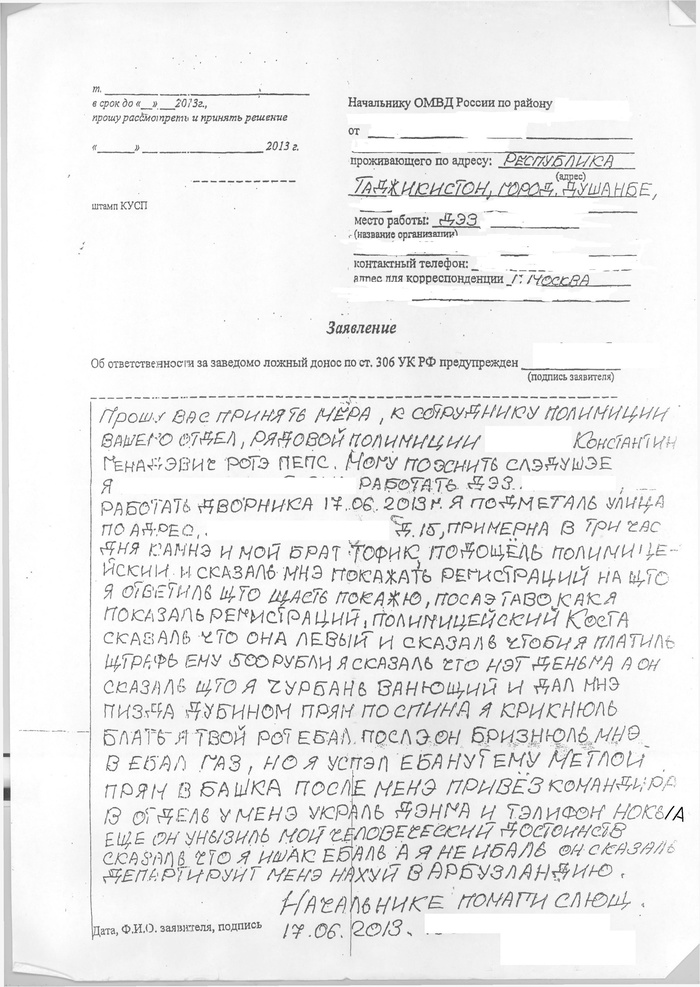 т.
в срок до «__» __2013г.,
прошу рассмотреть и принять решение
«______» __________________ 2013 г.
штамп КУСП
Начальнику ОМВД России по району
от
проживающего по адресу: РЕСПУБЛИКА
(адрес)
ТАДЖИКИСТОН, ГОРОД. ДУШАНБЕ,
место работы: ДЭЗ
(название организации)
контактный телефон:
адрес для корреспонденции Г. МОСКВА
Заявление
Об ответственности за заведомо ложный донос по ст. 306 УК РФ предупрежден
(подпись заявителя)
ПРОШУ ВАС ПРИНЯТЬ МЕРА, К СОТРУДНИКУ ПОЛИМИЦИИ
ВАШЕГО ОТДЕЛ, РЯДОВОЙ ПОЛИМИЦИИ КОНСТАНТИН
ГЕНАДЭВИЧ РОТЭ ПЕПС. МОГУ ПОЭСНИТЬ СЛЭДУШЭЕ
Я РАБОТАТЬ ДЭЗ..
РАБОТАТЬ ДВОРНИКА 17.06.2013г. Я ПОДМЕТАЛЬ УЛИЦА
ПО АДРЕС.. Д.15, ПРИМЕРНА В ТРИ ЧАС
ДНЯ КАМНЭ И МОЙ БРАТ ТОФИК, ПОДОЩЁЛЬ ПОЛИМИЦЕ-
ЙСКИЙ И СКАЗАЛЬ МНЭ ПОКАЖАТЬ РЕГИСТРАЦИЙ НА ЩТО
Я ОТВЕТИЛЬ ЩТО ЩАСТЬ ПОКАЖЮ, ПОСАЭТАВО КАК Я
ПОКАЗАЛЬ РЕГИСТРАЦИЙ, ПОЛИМИЦЕЙСКИЙ КОСТА
СКАЗАЛЬ ЧТО ОНА ЛЕВЫЙ И СКАЗАЛЬ ЧТОБИЯ ПЛАТИЛЬ
ЩТРАФЬ ЕМУ 500 РУБЛИ Я СКАЗАЛЬ ЧТО НЭТ ДЕНЬГА А ОН
СКАЗАЛЬ ЩТО Я ЧУРБАНЬ ВАНЮЩИЙ И ДАЛ МНЭ
ПИЗДА ДУБИНОМ ПРЯМ ПО СПИНА Я КРИКНЮЛЬ
БЛАТЬ Я ТВОЙ РОТ ЕБАЛ. ПОСЛЭ ОН БРИЗНЮЛЬ МНЭ
В ЕБАЛ ГАЗ, НО Я УСПЭЛ ЕБАНУТ ЕМУ МЕТЛОЙ
ПРЯМ В БАШКА ПОСЛЕ МЕНЭ ПРИВЁЗ КОМАНДИРА
В ОТДЕЛЬ У МЕНЭ УКРАЛЬ ДЭНГА И ТЭЛИФОН НОКЬ/А
ЕЩЕ ОН УНЫЗИЛЬ МОЙ ЧЕЛОВЕЧЕСКИЙ ДОСТОИНСТВ
СКАЗАЛЬ ЧТО Я ИШАК ЕБАЛЬ А Я НЕ ИБАЛЬ ОН СКАЗАЛЬ
ДЕПАРТИРУИТ МЕНЭ НАХУЙ В АРБУЗЛАНДИЮ.
НАЧАЛЬНИКЕ ПОМАГИ СЛЮЩ.
Дата, Ф.И.О. заявителя, подпись 17.06.2013.